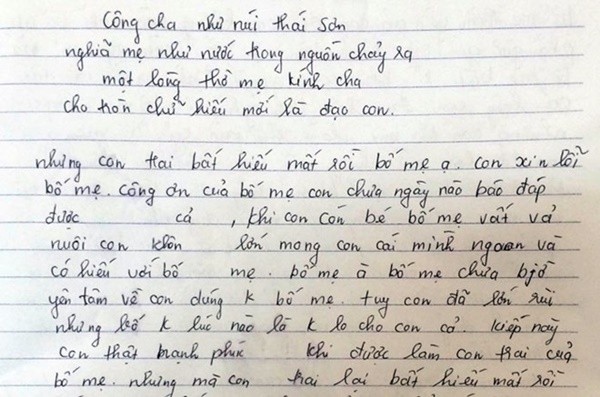 Công cha như núi thái Sơn
nghiã mẹ như nước trong nguồn chảy ra
một lòng thờ mẹ kính cha
cho tròn chữ hiếu mới là đạo con.
nhưng con trai bất hiếu mất rồi bố mẹ ạ. con xin lỗi
bố mẹ. công ơn của bố mẹ con chưa ngày nào báo đáp
được cả, khi con còn bé bố mẹ vất vả
nuôi con khôn lớn mong con cái mình ngoan và
có hiếu với bố mẹ. bố mẹ à bố mẹ chưa bjờ
yên tâm về con đúng k bố mẹ. tuy con đã lớn rùi
nhưng bố k lúc nào là k lo cho con cả. kiếp này
con thật hạnh phúc khi được làm con trai của
bố mẹ. nhưng mà con trai lại bất hiếu mất rồi